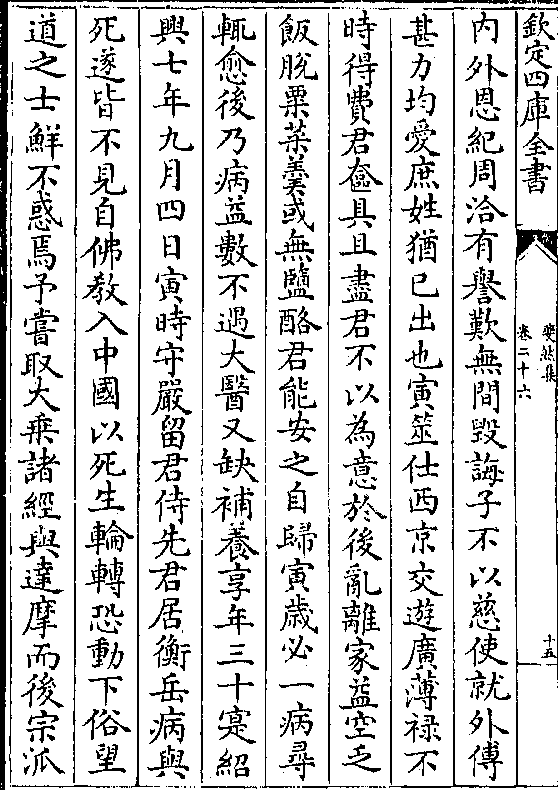 欽定四庫全書
斐然集
卷二十六
十五
内外恩紀周洽有譽歎無間毀誨子不以慈使就外傅
甚力均愛庶姓猶已出也寅筮仕西京交遊廣薄禄不
時得費君奩具且盡君不以為意於後亂離家益空乏
飯脱粟菜羮或無鹽酪君能安之自歸寅歲必一病尋
輒愈後乃病益數不遇大醫又缺補養享年三十寔紹
興七年九月四日寅時守嚴留君侍先君居衡岳病與
死遂皆不見自佛教入中國以死生輪轉恐動下俗望
道之士鮮不惑焉予嘗取大乗諸經與達摩而後宗派